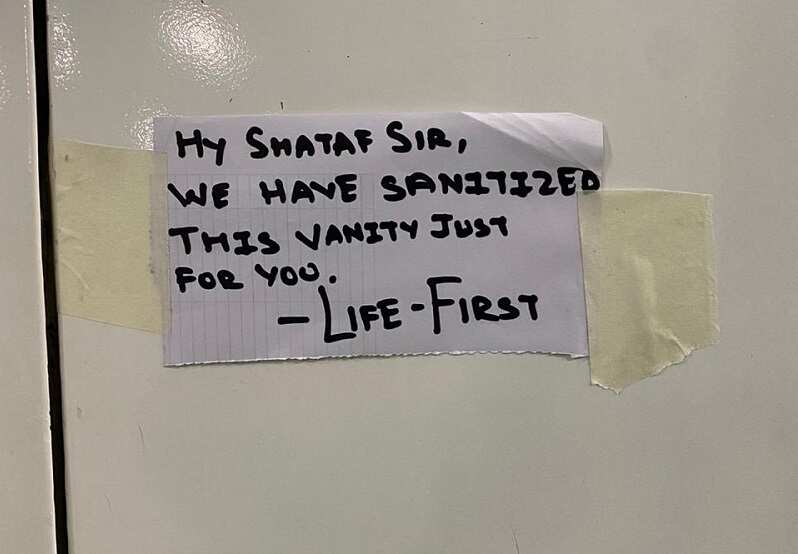 HY SHATAF SIR,
WE HAVE SANITIZED
THIS VANITY JUST
FOR YOU.
- LIFE-FIRST